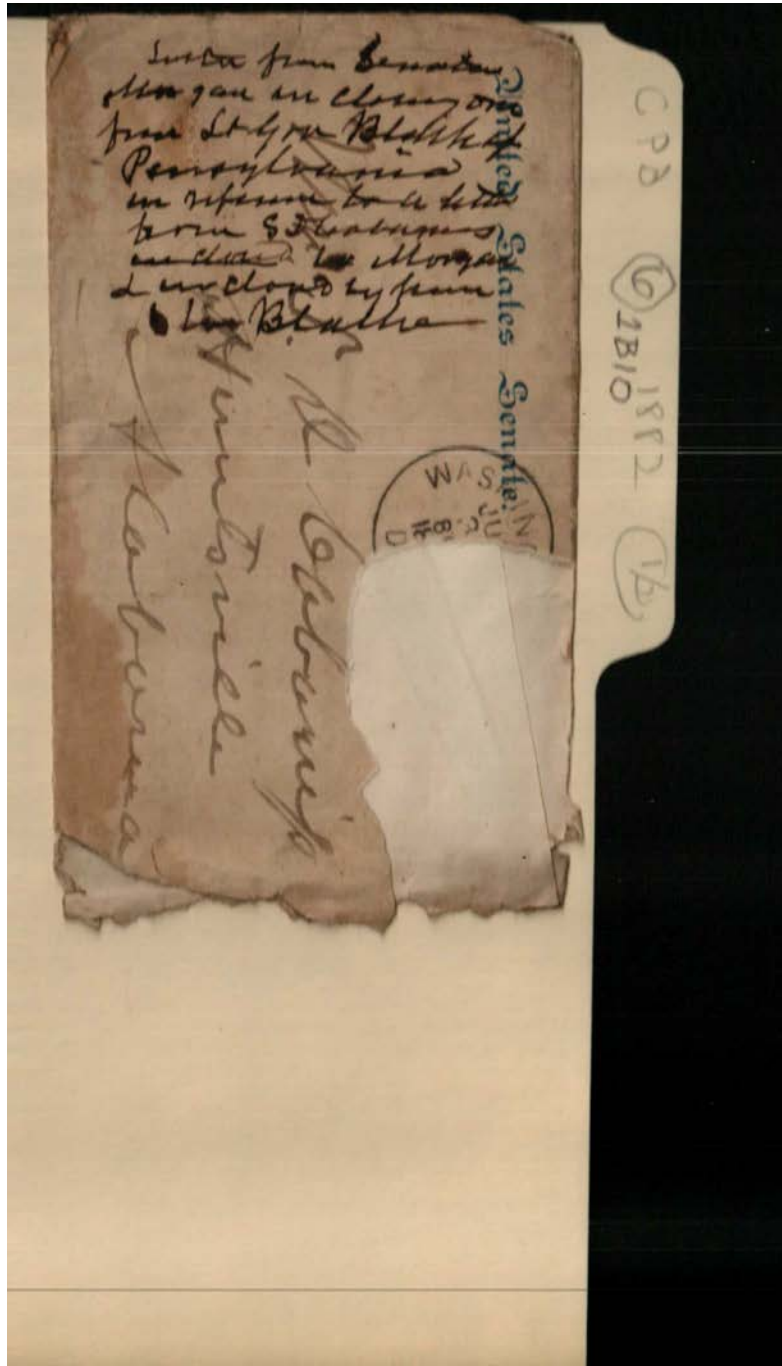 Letter from Senator
Morgan enclosing one
from Lt Gov Black of
Pensylvania
in reference to a letter
from S D Cabaniss
enclosed to Morgan
& enclosed by him
to Black
United States Senate.
WASHING
JU
D
S D Cabaniss
Huntsville
Alabama
CPB 1882 1/2
6 IBIO